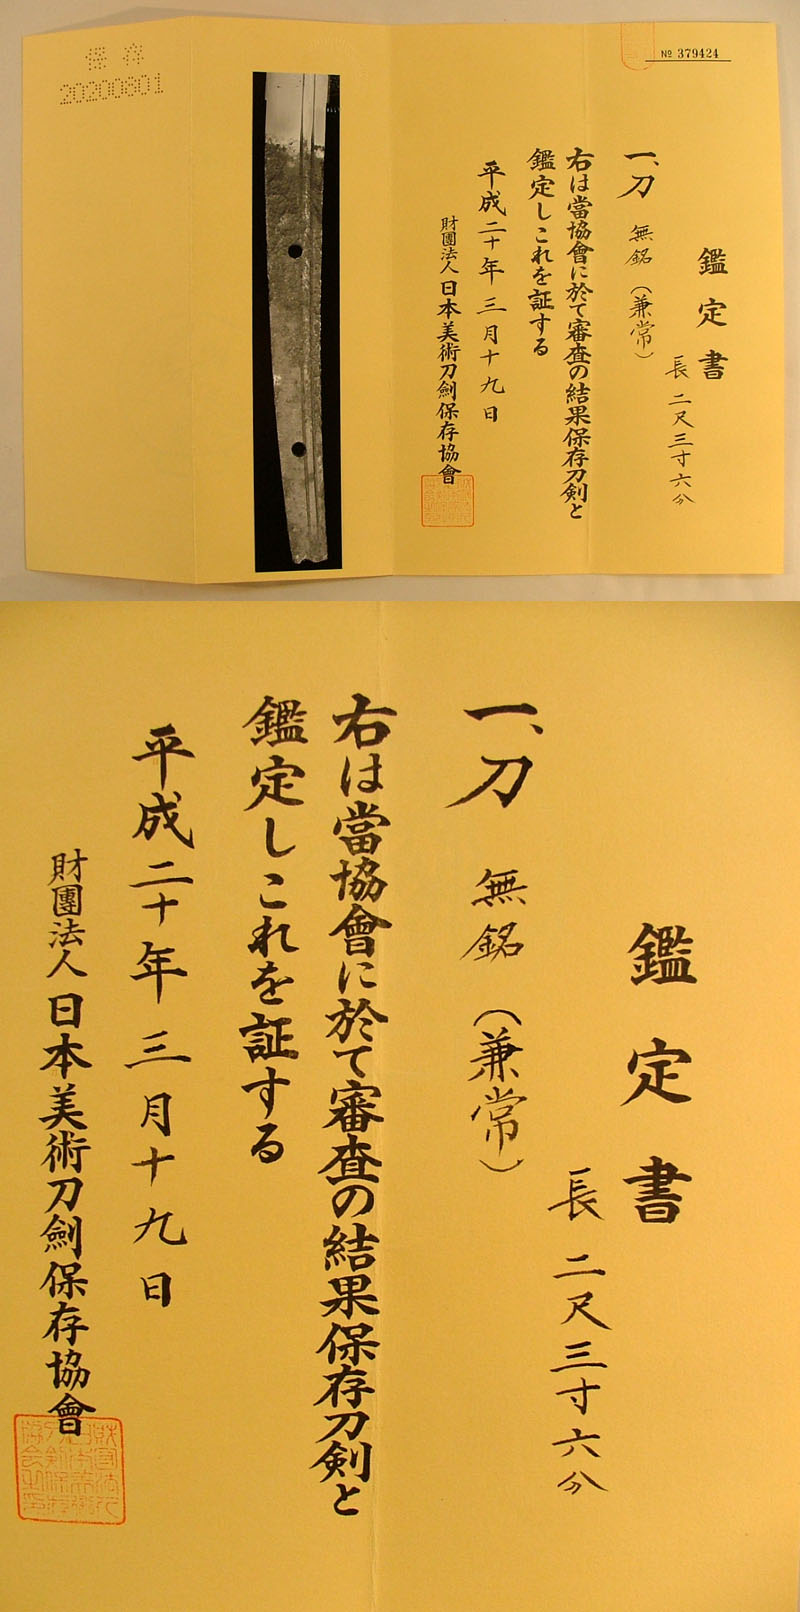 保存
20200801
№ 379424
鑑定書
長 二尺三寸六分
一、刀 無銘（兼常）
右は當協會に於て審査の結果保存刀剣と
鑑定しこれを証する
平成二十年三月十九日
財團法人 日本美術刀劍保存協會
鑑定書
長 二尺三寸六分
一、刀 無銘（兼常）
右は當協會に於て審査の結果保存刀剣と
鑑定しこれを証する
平成二十年三月十九日
財團法人 日本美術刀劍保存協會